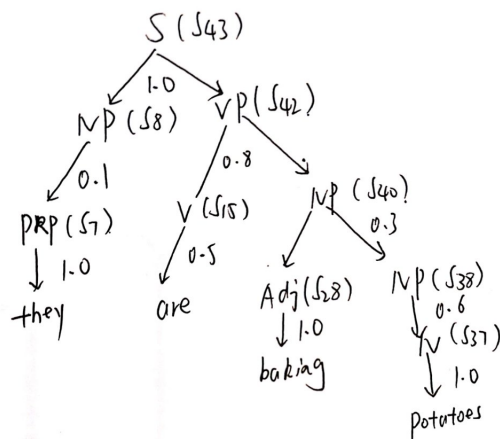 S (S43)
1.0
NP (S8) VP (S42)
0.1 0.8
PRP (S7) V (S15) NP (S40)
1.0 0.5 0.3
they are Adj (S28) NP (S38)
1.0 0.6
baking N (S37)
1.0
potatoes